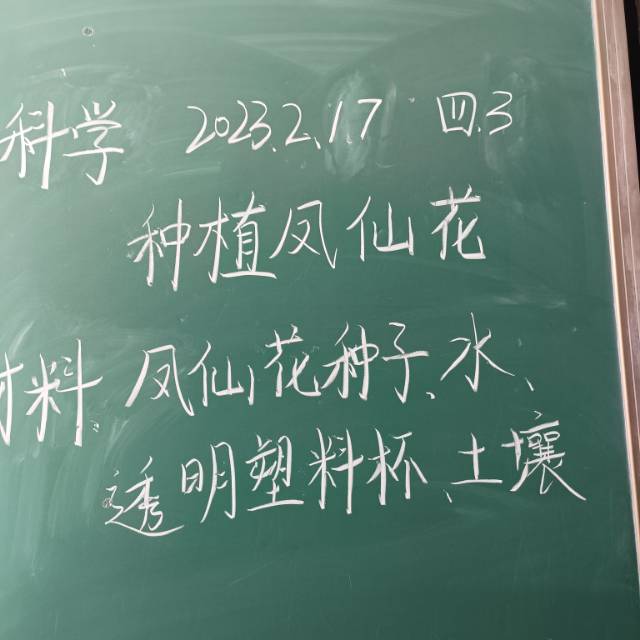 科学 2023.2.17 四.3
种植凤仙花
材料:凤仙花种子、水、
透明塑料杯、土壤